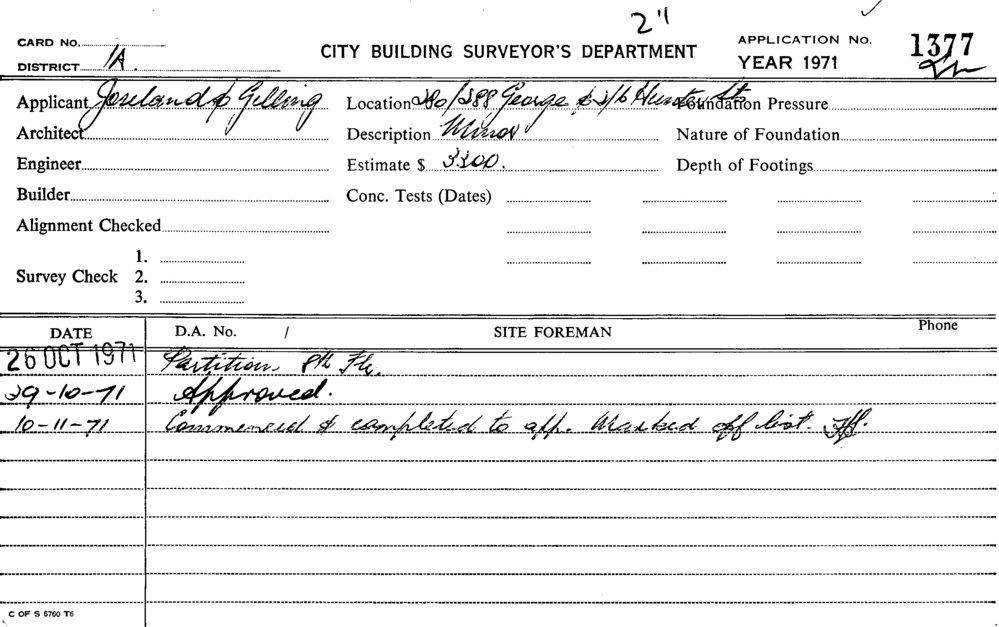 2"
CARD No.
CITY BUILDING SURVEYOR'S DEPARTMENT
APPLICATION No. 1377
DISTRICT 1A.
YEAR 1971
Applicant Joseland & Gilling
Location 280/288 George & 2/6 Hunter St
Foundation Pressure
Architect
Description Minor
Nature of Foundation
Engineer
Estimate $ 3300.
Depth of Footings
Builder
Conc. Tests (Dates)
Alignment Checked
1.
Survey Check 2.
3.
DATE
D.A. No. /
SITE FOREMAN
Phone
26 OCT 1971 Partition. 8th Flr.
29-10-71 Approved.
10-11-71 Commenced & completed to app. Marked off list.
C OF S 5760 T6